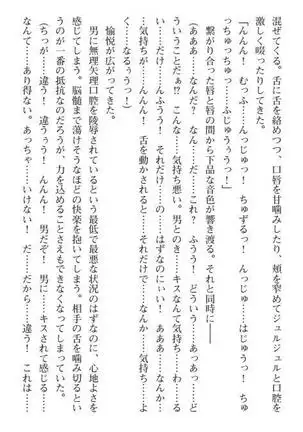 混ぜてくる。舌に舌を絡めつつ、口唇を甘噛みしたり、頬を窄めてジュルジュルと口腔を
激しく啜ったりしてきた。
「んんん！　むっふ、んっじゅっ！　ちゅずるっ！　んっじゅ……はじゅうっ！　ちゅ
っちゅっちゅっ……ふじゅううううっ！」
　繋がり合った唇と唇の間から下品な音色が響き渡る。それと同時に――
（あああ……なんだ？　なん……だ……これ？　ふうう！　どうい……あっあっ……ど
ういうことだぁ！？　こんな……気持ち悪い。男とのき……キスなんて気持ち……わ……る
い……だけ……んふうっ！　それだけ……の……はずなのにぃい！　あああ……なんだ
……気持ちが……んんん！　舌を動かされると……それだけで……なんか……気持ちよ
くなるぅうっ！）
　愉悦が広がってきた。
　男に無理矢理口腔を陵辱されているという最低で最悪な状況のはずなのに、心地よさを
感じてしまう。脳髄まで蕩けそうなほどの快楽を抱いてしまう。相手の舌を噛み切るとい
うのが一番の抵抗なのだろうが、力を込めることさえもできなくなってしまっていた。
（ちっが……違う！　違うぅう！　んんん！　男だぞ！　男に……キスされて感じる！
なんて……あり得ない。あっちゃ……いけない！　だ……だから……違う！　これは……